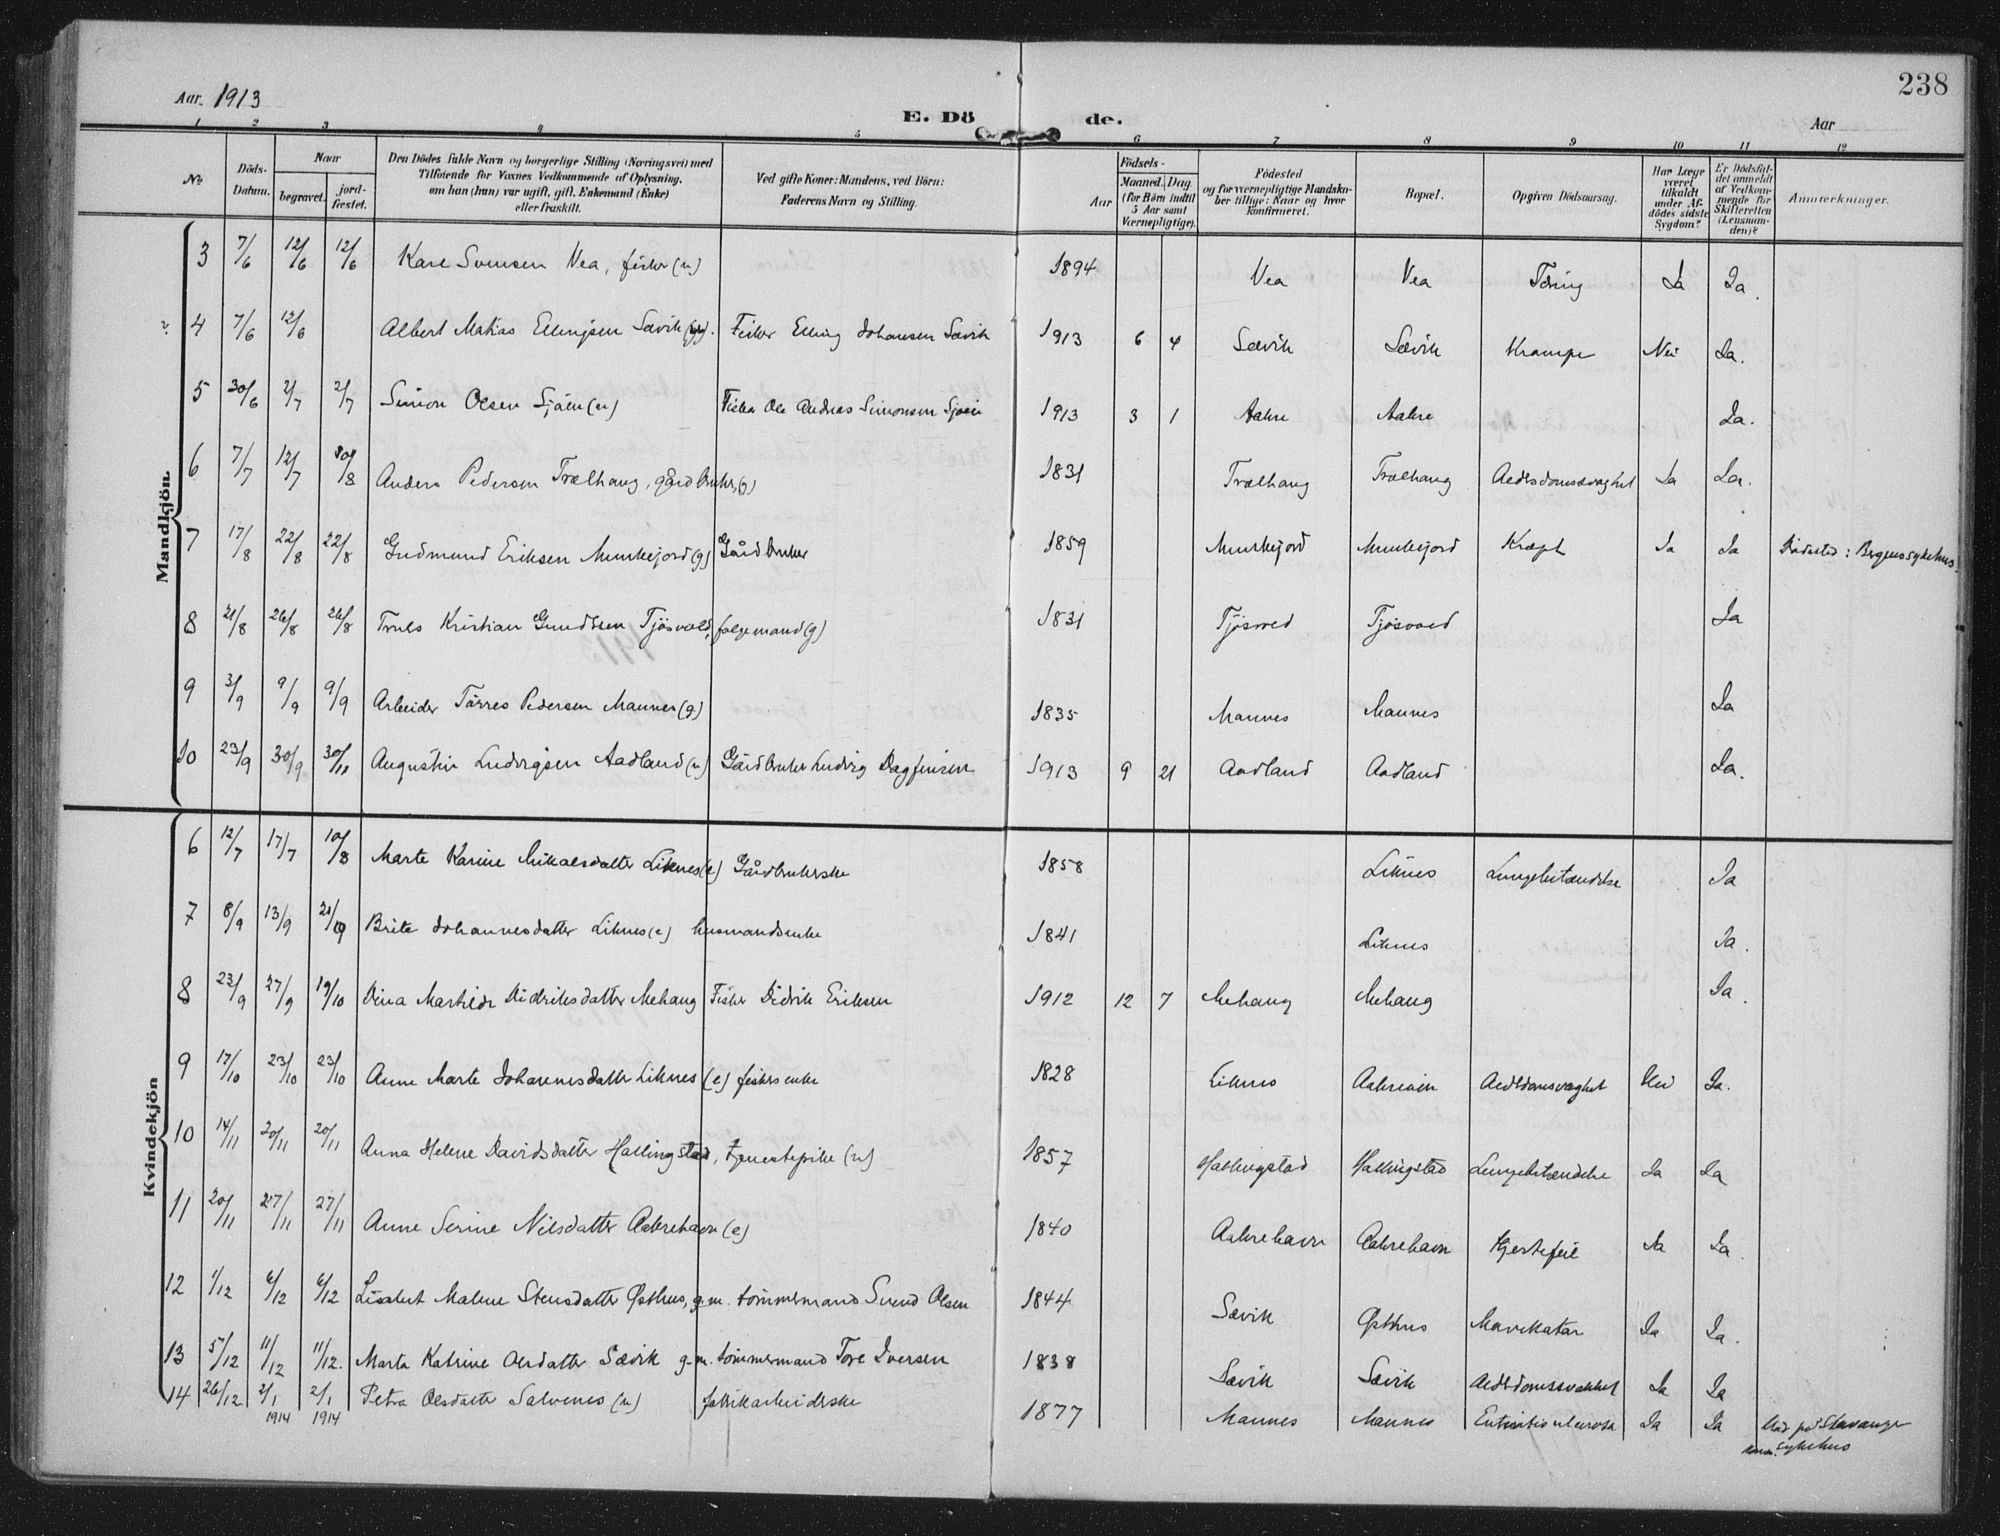 238
Aar. 1913
E. Dö de.
Aar
1 2 3 4 5 6 7 8 9 10 11 12
№
Döds-Datum.
Naar
begravet.
jord-fæstet.
Den Dödes fulde Navn og borgerlige Stilling (Næringsvei) med
Tilföiende for Voxnes Vedkommende af Oplysning,
om han (hun) var ugift, gift, Enkemand (Enke)
eller fraskilt.
Ved gifte Koner: Mandens, ved Börn:
Faderens Navn og Stilling.
Födsels-
Aar
Maaned. Dag
(for Börn indtil
5 Aar samt
Værnepligtige).
Födested
og for værnepligtige Mandska-
ber tillige: Naar og hvor
konfirmeret.
Bopæl.
Opgiven Dödsaarsag.
Har Læge
været
tilkaldt
under Af-
dödes sidste
Sygdom?
Er Dödsfal-
det anmeldt
af Vedkom-
mende for
Skifteretten
(Lensman-
den)?
Anmærkninger.
Mandkjön.
3 7/6 12/6 12/6 Kare Svensen Vea, fisker (u) 1894 Vea Vea Tæring Ja Ja.
4 7/6 12/6 Albert Matias Ellingsen Sævik Fisker Elling Johansen Sævik 1913 6 4 Sævik Sævik Krampe Nei Ja.
5 30/6 2/7 2/7 Simon Olsen Sjöen (u) Fisker Ole Andreas Simonsen Sjöen 1913 3 1 Aakre Aakre Ja.
6 7/7 12/7 Anders Pedersen Trælhaug, gårdbruker (g) 1831 Trælhaug Trælhaug Alderdomssvaghet Ja Ja.
7 17/8 22/8 22/8 Gudmund Eriksen Munkejord (g) Gårdbruker 1859 Munkejord Munkejord Kræft Ja Ja Dödssted: Bergens sykehus.
8 21/8 26/8 26/8 Truls Kristian Gundersen Tjösvold, folgemand (g) 1831 Tjösvold Tjösvold Ja
9 3/9 9/9 9/9 Arbeider Törres Pedersen Mannes (g) 1835 Mannes Mannes Ja
10 23/9 30/9 30/11 Augustin Ludvigsen Aadland (u) Gårdbruker Ludvig Dagfinsen 1913 9 21 Aadland Aadland Ja.
Kvindekjön
6 12/7 17/7 10/8 Marte Karine Mikalsdatter Liknes (e) Gårdbrukerske 1858 Liknes Lungebetændelse Ja
7 8/9 13/9 Brite Johannesdatter Liknes (e) husmandsenke 1841 Liknes Ja.
8 23/9 27/9 19/10 Dina Mathilde Didriksdatter Mehaug Fisker Didrik Eriksen 1912 12 7 Mehaug Mehaug Ja.
9 17/10 23/10 23/10 Anne Marte Johannesdatter Liknes (e) fiskers enke 1828 Liknes Aakrevin Alderdomsvaghet Nei Ja.
10 14/11 20/11 20/11 Anna Helene Davidsdatter Hallingstad, tjenestepike (u) 1857 Hallingstad Hallingstad Lungebetændelse Ja Ja
11 20/11 27/11 27/11 Anne Serine Nilsdatter Aakrehavn (e) 1840 Aakrehavn Aakrehavn Hjertefeil Ja Ja.
12 1/12 6/12 6/12 Lisabet Malene Stensdatter Østhus, g.m. tömmermand Svend Olsen 1844 Sævik Østhus Mavekatar Ja Ja.
13 5/12 11/12 11/12. Marta Katrine Olsdatter Sævik g.m. tömmermand Tore Iversen 1838 Sævik Sævik Alderdomssvakhet Ja Ja
14 26/12 2/1 1914 2/1 1914 Petra Olsdatter Salvenes (u) fabrikarbeiderske 1877 Mannes Mannes Ja Ja Död på Stavanger
kom. sykehus